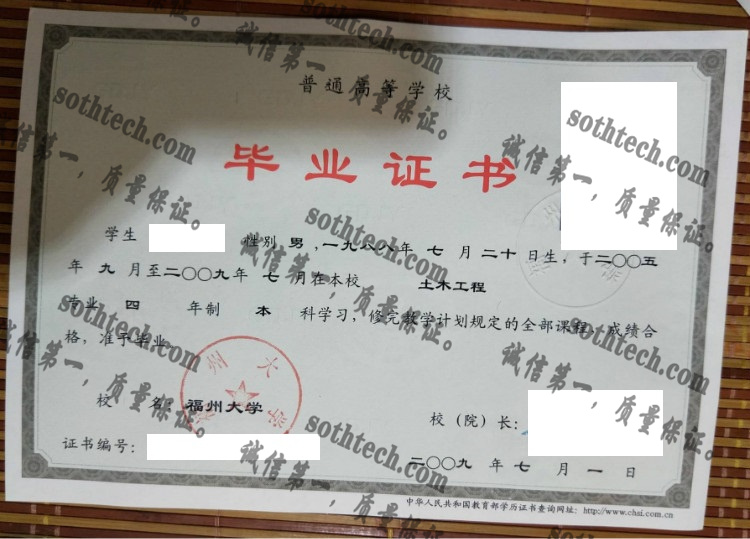 普通高等学校
毕业证书
学生 性别 男 ,一九八八年 七 月 二十日生，于二〇〇五
年 九 月至二〇〇九年 七 月在本校 土木工程
专业 四 年制 本 科学习，修完教学计划规定的全部课程，成绩合
格，准予毕业。
校 名：福州大学
校（院）长：
证书编号：
二〇〇九 年 七 月 一 日
中华人民共和国教育部学历证书查询网址：http://www.chsi.com.cn
福州大学
sothtech.com
诚信第一，质量保证。
sothtech.com
诚信第一，质量保证。
sothtech.com
诚信第一，质量保证。
sothtech.com
诚信第一，质量保证。
sothtech.com
诚信第一，质量保证。
sothtech.com
诚信第一，质量保证。
sothtech.com
诚信第一，质量保证。